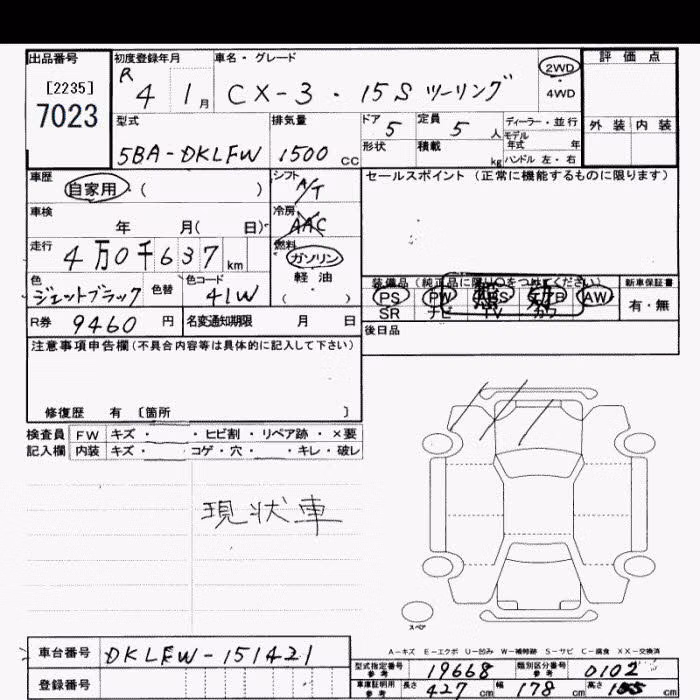 出品番号 初度登録年月 車名・グレード 評価点
[2235] R 4 1月 CX-3・15S ツーリング 2WD
7023 4WD
型式 排気量 ドア 5 定員 5人 ディーラー・並行 外装 内装
5BA-DKLFW 1500cc 形状 積載 kg モデル年式 年
ハンドル 左・右
車歴 シフト セールスポイント (正常に機能するものに限ります)
自家用 ( ) A/T
車検 冷房
年 月( 日) AAC
走行 燃料
4万0千637km ガソリン
色 色替 色コード 軽油 装備品 新車保証書
ジェットブラック 41W ( ) PS PW ABS AW 有・無
SR ナビ TV カワ
無効
R券 9460円 名変通知期限 月 日 後日品
注意事項申告欄(不具合内容等は具体的に記入して下さい)
修復歴 有 〔箇所 〕
検査員 FW キズ・ ・ヒビ割・リペア跡・×要
記入欄 内装 キズ・ ・コゲ・穴・ ・キレ・破レ
現状車
スペア
A-キズ E-エクボ U-凹み W-補修跡 S-サビ C-腐食 XX-交換済
車台番号 DKLFW-151421 型式指定番号 参考 19668 類別区分番号 参考 0102
登録番号 車庫証明用 参考 長さ 427cm 幅 178cm 高さ 155cm